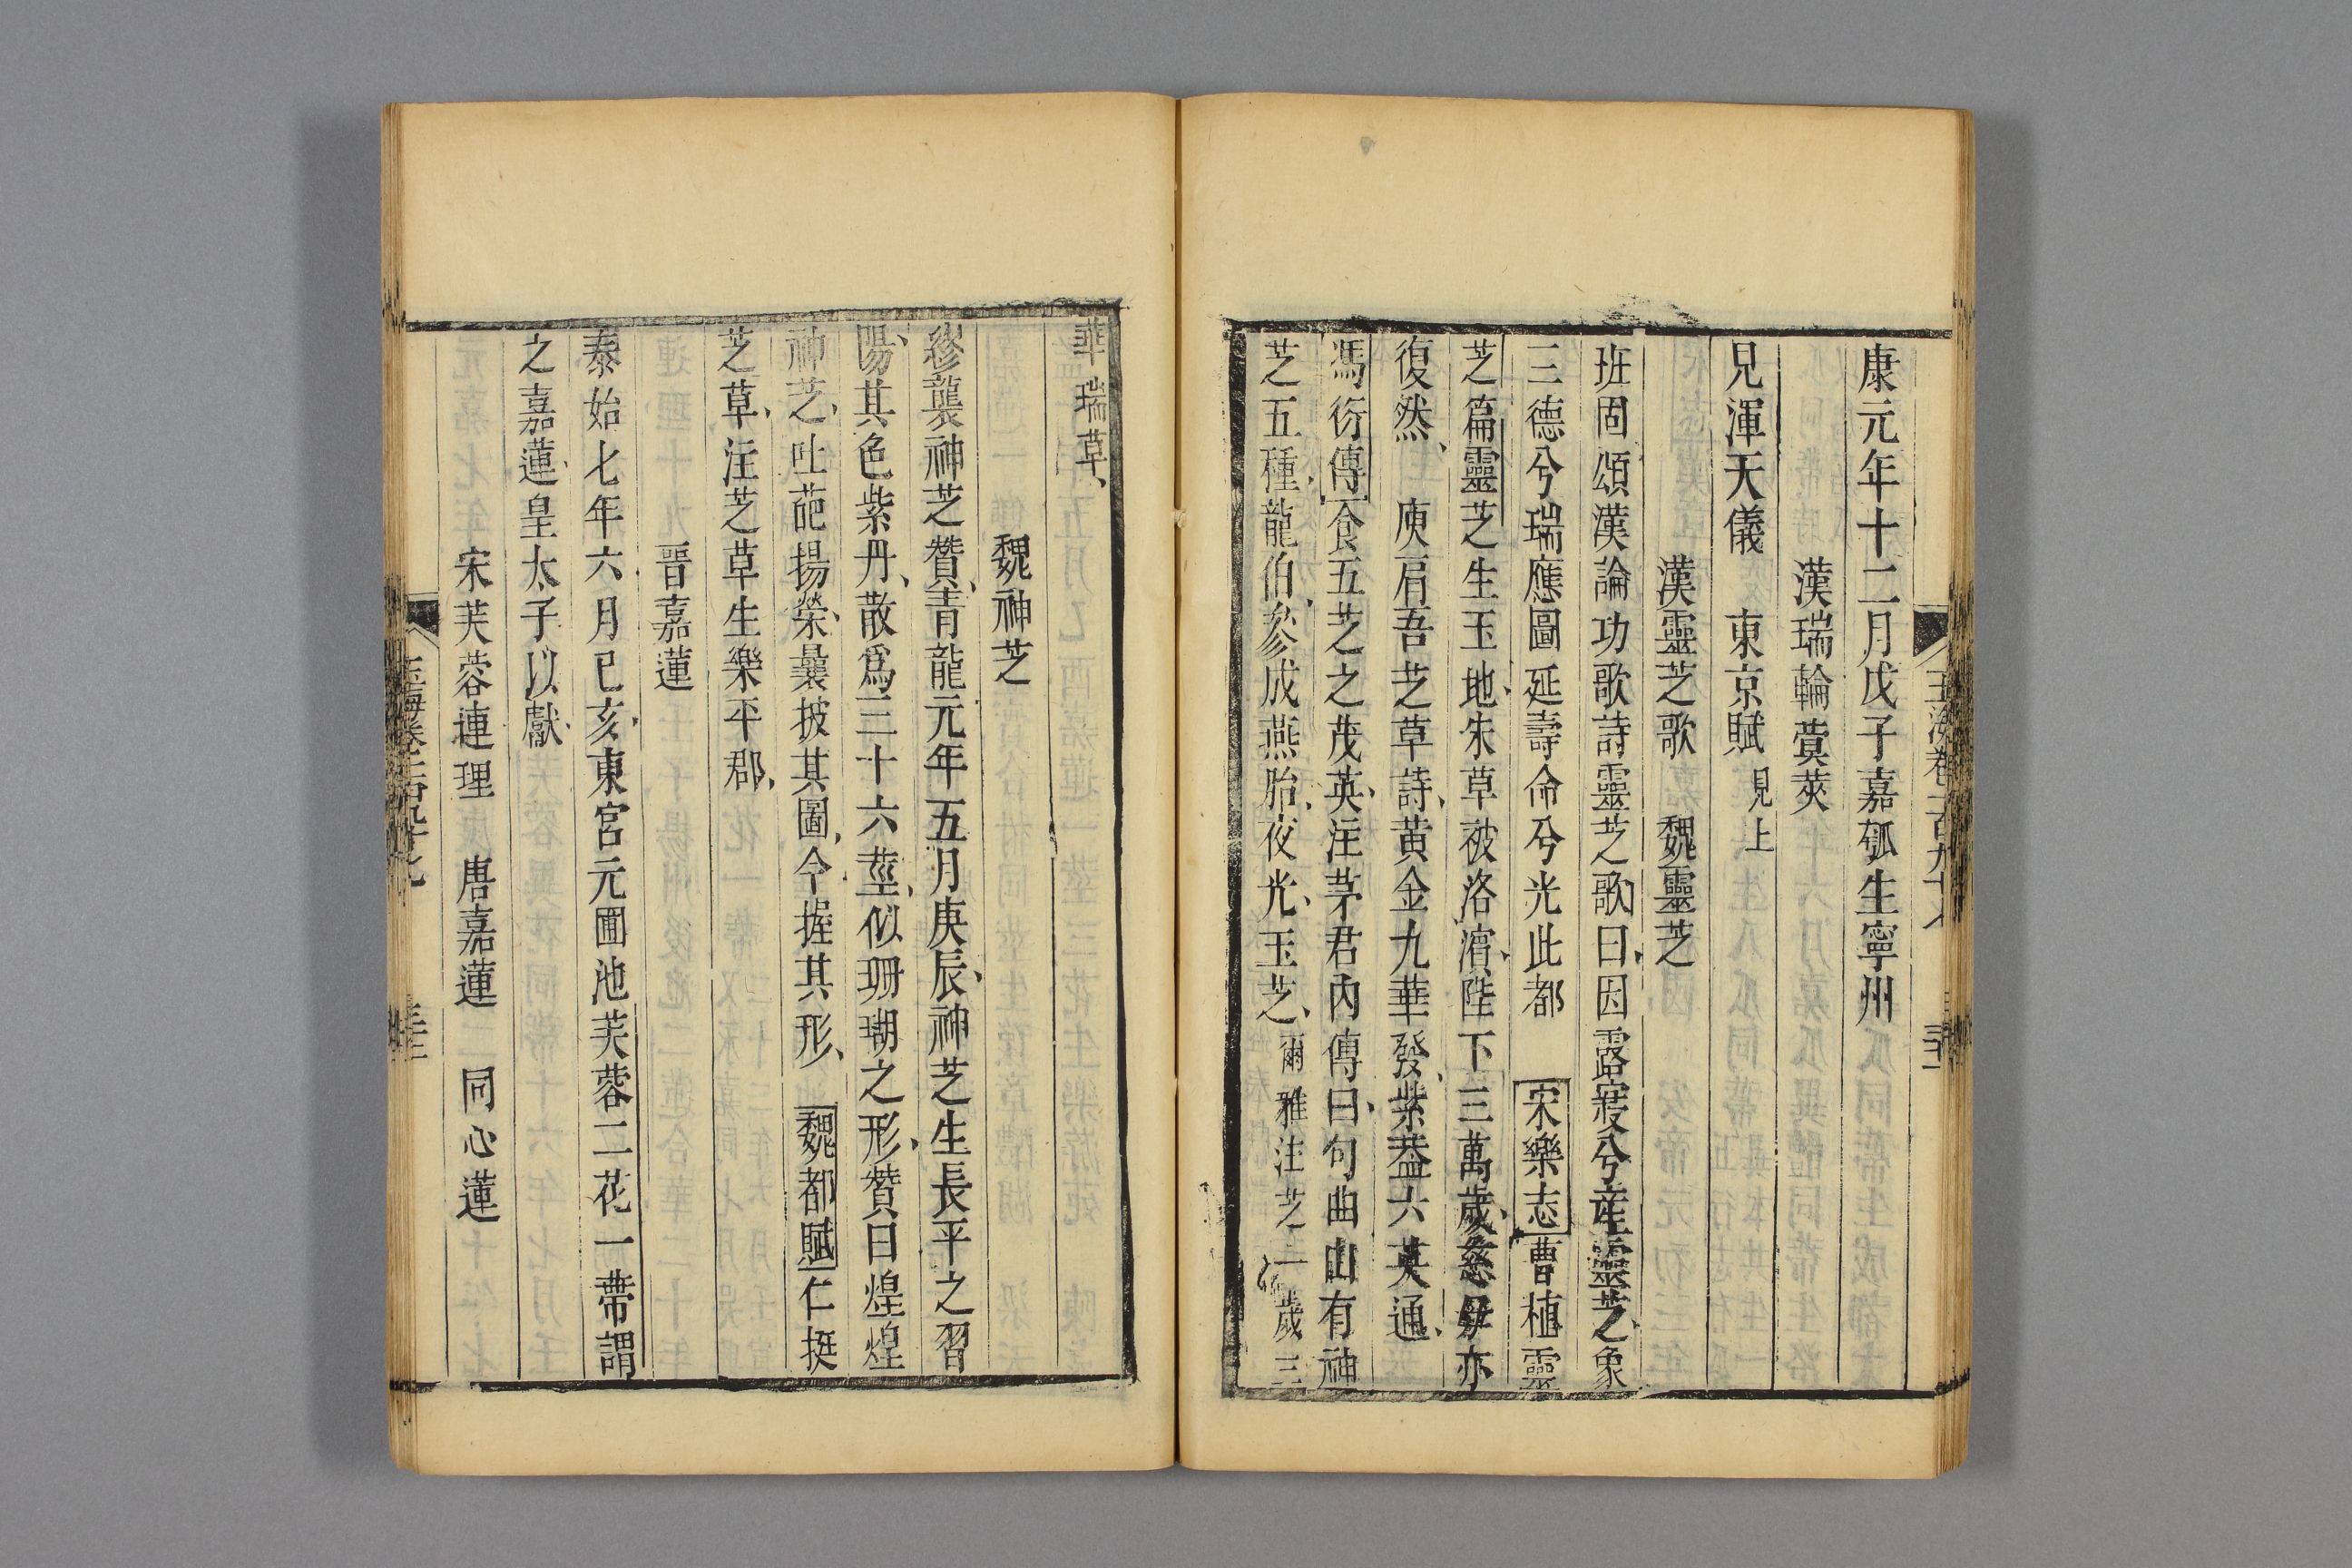 康元年十二月戊子嘉瓠生寧州
漢瑞輪蓂莢
見渾天儀 東京賦 見上
漢靈芝歌 魏靈芝
班固頌漢論功歌詩靈芝歌曰因露寢兮產靈芝象
三德兮瑞應圖延壽命兮光此都 宋樂志曹植靈
芝篇靈芝生玉地朱草被洛濵陛下三萬歲慈母亦
復然 庾肩吾芝草詩黃金九華發紫葢六英通
馮衍傳食五芝之茂英注茅君內傳曰句曲山有神
芝五種龍伯參成燕胎夜光玉芝爾雅注芝一歲三
華瑞草
魏神芝
繆襲神芝贊青龍元年五月庚辰神芝生長平之習
陽其色紫丹散爲三十六莖似珊瑚之形贊曰煌煌
神芝吐葩揚榮曩披其圖今握其形 魏都賦仁挺
芝草注芝草生樂平郡
晉嘉蓮
泰始七年六月已亥東宮元圃池芙蓉二花一蔕謂
之嘉蓮皇太子以獻
宋芙蓉連理 唐嘉蓮 同心蓮